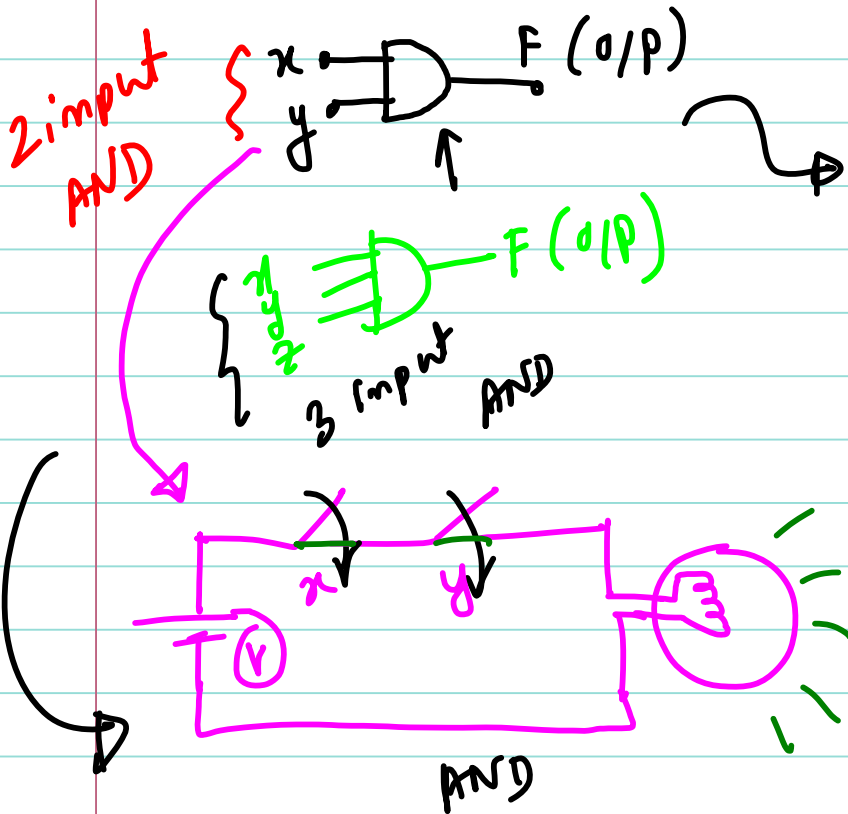 2 input
AND
x
y
F (O/P)
x
y
z
F (O/P)
3 input AND
x
y
V
AND